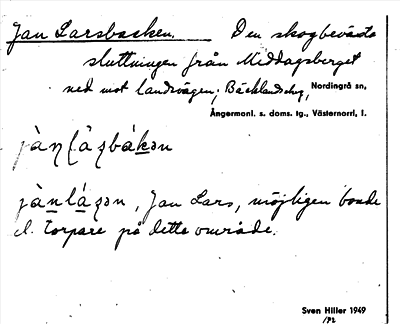 Jan Larsbacken. Den skogbevästa
sluttningen från Middagsberget
ned mot landsvägen; Bäcklandsbyg, Nordingrå sn,
Ångermanl. s. doms. tg., Västernorrl. l.
, Jan Lars, möjligen bonde
el. torpare på detta område.
Sven Hiller 1949